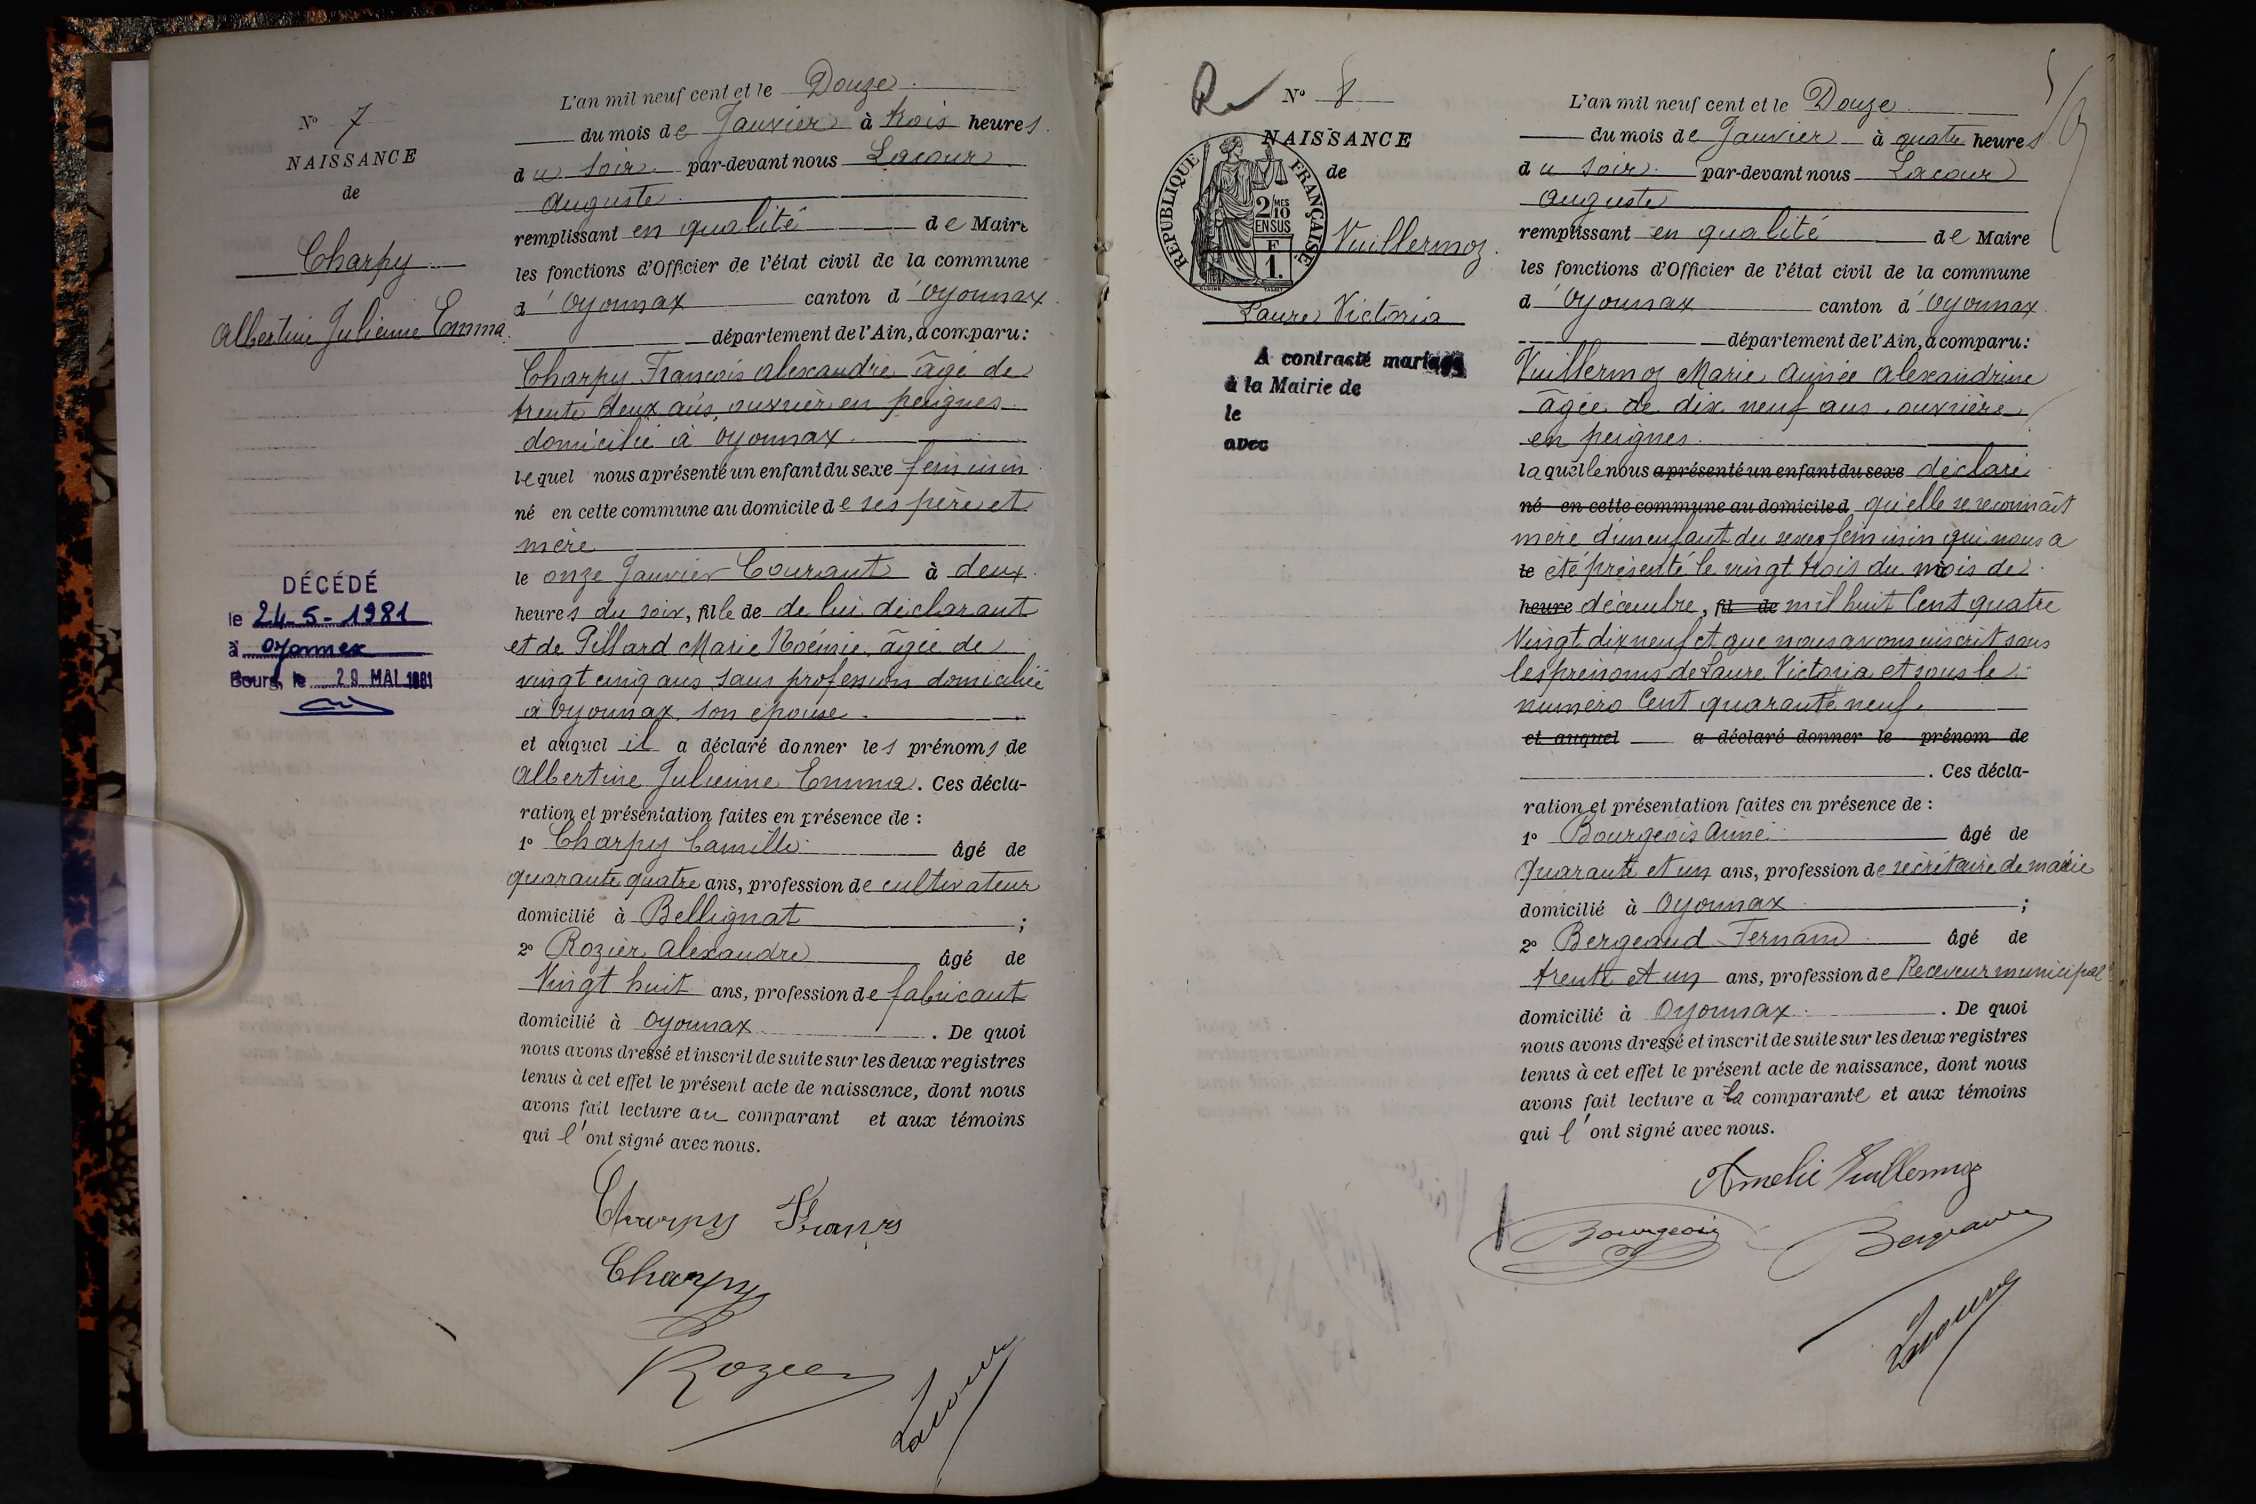 N° 7
NAISSANCE
de
Charpy
Albertine Julienne Emma
DÉCÉDÉ
le 24-5-1981
à Oyonnax
Bourg, le 29 MAI 1981
L'an mil neuf cent et le Douze
du mois de Janvier à trois heures
du soir par-devant nous Lacour
Auguste
remplissant en qualité de Maire
les fonctions d'Officier de l'état civil de la commune
d'Oyonnax canton d'Oyonnax
département de l'Ain, a comparu:
Charpy François Alexandre âgé de
trente deux ans, ouvrier en peignes
domicilié à Oyonnax
lequel nous a présenté un enfant du sexe féminin
né en cette commune au domicile de ses père et
mère
le onze Janvier Courant à deux
heures du soir, fille de de lui déclarant
et de Pillard Marie Noémie, âgée de
vingt cinq ans sans profession domiciliée
à Oyonnax, son épouse.
et auquel il a déclaré donner les prénoms de
Albertine Julienne Emma. Ces décla-
ration et présentation faites en présence de :
1° Charpy Camille âgé de
quarante quatre ans, profession de cultivateur
domicilié à Bellignat ;
2° Rozier Alexandre âgé de
Vingt huit ans, profession de fabricant
domicilié à Oyonnax . De quoi
nous avons dressé et inscrit de suite sur les deux registres
tenus à cet effet le présent acte de naissance, dont nous
avons fait lecture au comparant et aux témoins
qui l'ont signé avec nous.
Charpy Francis
Charpy
Rozier
Lacour
N° 8
NAISSANCE
de
RÉPUBLIQUE FRANÇAISE
2 MES
10
EN SUS
F
1.
Vuillermoz
Laure Victoria
A contracté mariage
à la Mairie de
le
avec
L'an mil neuf cent et le Douze
du mois de Janvier à quatre heures
du soir par-devant nous Lacour
Auguste
remplissant en qualité de Maire
les fonctions d'Officier de l'état civil de la commune
d'Oyonnax canton d'Oyonnax
département de l'Ain, a comparu:
Vuillermoz Marie Aimée Alexandrine
âgée de dix neuf ans, ouvrière
en peignes
laquelle nous a présenté un enfant du sexe déclaré
né en cette commune au domicile d qu'elle se reconnaît
mère d'un enfant du sexe féminin qui nous a
le été présenté le vingt trois du mois de
heure décembre, fil de mil huit Cent quatre
Vingt dix neuf et que nous avons inscrit sous
les prénoms de Laure Victoria et sous le
numéro Cent quarante neuf.
et auquel a déclaré donner le prénom de
. Ces décla-
ration et présentation faites en présence de :
1° Bourgeois Aimé âgé de
Quarante et un ans, profession de secrétaire de mairie
domicilié à Oyonnax ;
2° Bergeaud Fernand âgé de
trente et un ans, profession de Receveur municipal
domicilié à Oyonnax . De quoi
nous avons dressé et inscrit de suite sur les deux registres
tenus à cet effet le présent acte de naissance, dont nous
avons fait lecture a la comparante et aux témoins
qui l'ont signé avec nous.
Amelie Vuillermoz
Bourgeois Bergeaud
Lacour